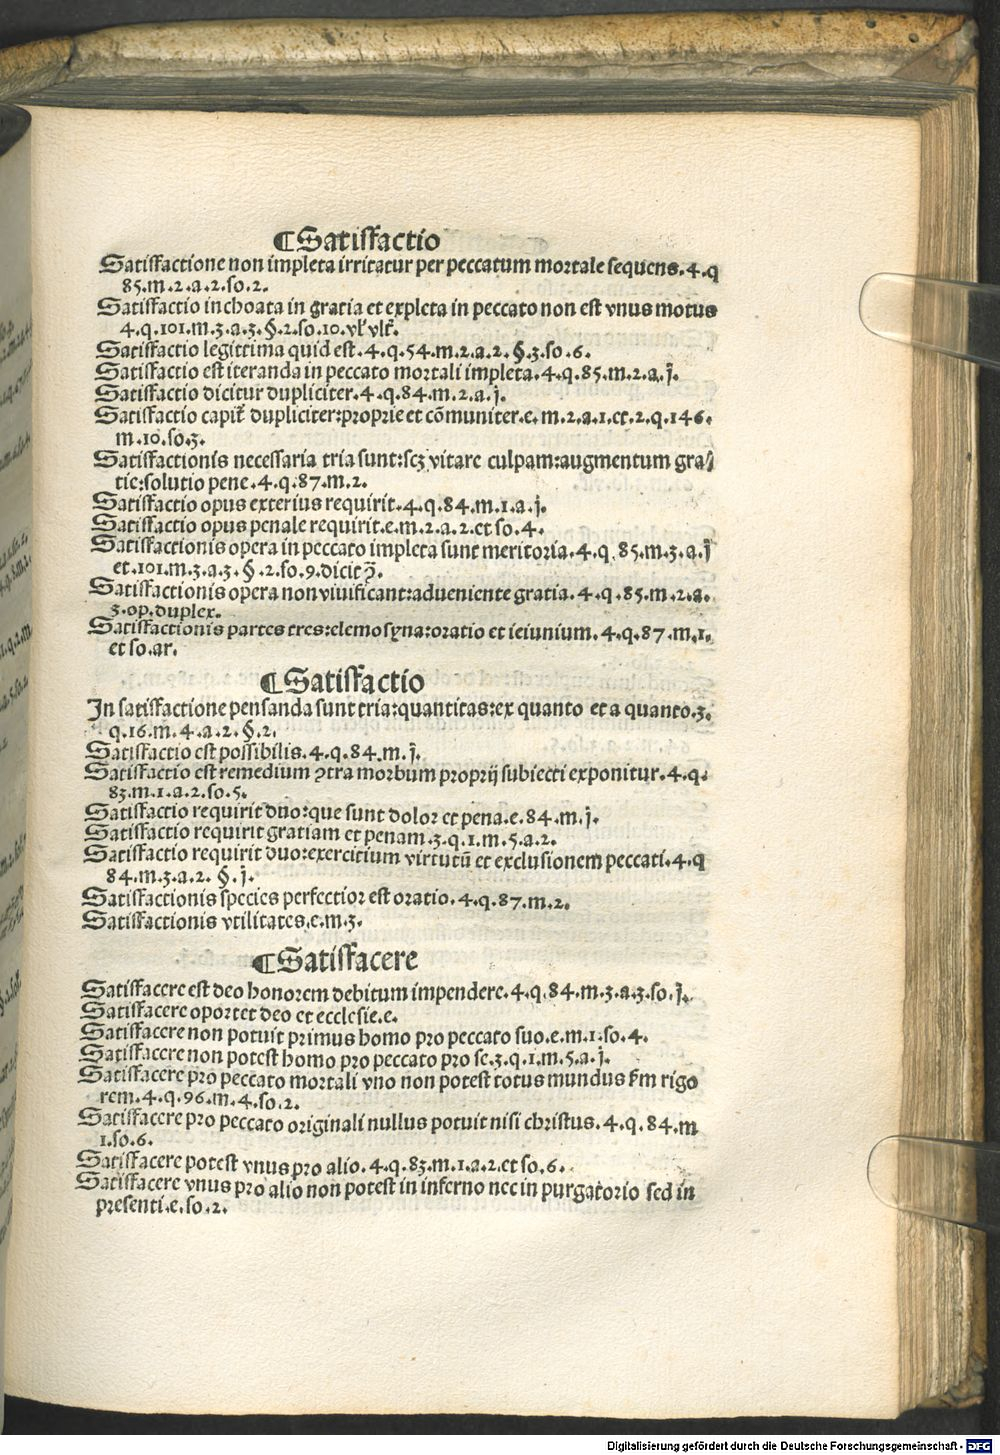 ¶Satisfactio
Satisfactione non impleta irritatur per peccatum mortale sequens.4.q
85.m.2.a.2.so.2.
Satisfactio inchoata in gratia et expleta in peccato non est vnus motus
4.q.101.m.3.a.3.§.2.so.10.vl' vlt̄.
Satisfactio legittima quid est.4.q.54.m.2.a.2.§.3.so.6.
Satisfactio est iteranda in peccato mortali impleta.4.q.85.m.2.a.j.
Satisfactio dicitur dupliciter.4.q.84.m.2.a.j.
Satisfactio capit̄ dupliciter:proprie et cōmuniter.e.m.2.a.1.et.2.q.146.
m.10.so.3.
Satisfactionis necessaria tria sunt:scꝫ vitare culpam:augmentum gra⸗
tie:solutio pene.4.q.87.m.2.
Satisfactio opus exterius requirit.4.q.84.m.1.a.j.
Satisfactio opus penale requirit.e.m.2.a.2.et so.4.
Satisfactionis opera in peccato impleta sunt meritoria.4.q.85.m.3.a.j
et.101.m.3.a.3.§.2.so.9.dicit ꝯ̄.
Satisfactionis opera non viuificant:adueniente gratia.4.q.85.m.2.a.
3.op.duplex.
Satisfactionis partes tres:elemosyna:oratio et ieiunium.4.q.87.m.1.
et so.ar.
¶Satisfactio
In satisfactione pensanda sunt tria:quantitas:ex quanto et a quanto.3.
q.16.m.4.a.2.§.2.
Satisfactio est possibilis.4.q.84.m.j.
Satisfactio est remedium ꝯtra morbum proprij subiecti exponitur.4.q.
83.m.1.a.2.so.5.
Satisfactio requirit duo:que sunt dolor et pena.e.84.m.j.
Satisfactio requirit gratiam et penam.3.q.1.m.5.a.2.
Satisfactio requirit duo:exercitium virtutū et exclusionem peccati.4.q
84.m.3.a.2.§.j.
Satisfactionis species perfectior est oratio.4.q.87.m.2.
Satisfactionis vtilitates.e.m.3.
¶Satisfacere
Satisfacere est deo honorem debitum impendere.4.q.84.m.3.a.3.so.j.
Satisfacere oportet deo et ecclesie.e.
Satisfacere non potuit primus homo pro peccato suo.e.m.1.so.4.
Satisfacere non potest homo pro peccato pro se.3.q.1.m.5.a.j.
Satisfacere pro peccato mortali vno non potest totus mundus s̄m rigo
rem.4.q.96.m.4.so.2.
Satisfacere pro peccato originali nullus potuit nisi christus.4.q.84.m
1.so.6.
Satisfacere potest vnus pro alio.4.q.83.m.1.a.2.et so.6.
Satisfacere vnus pro alio non potest in inferno nec in purgatorio sed in
presenti.e.so.2.
Digitalisierung gefördert durch die Deutsche Forschungsgemeinschaft - DFG